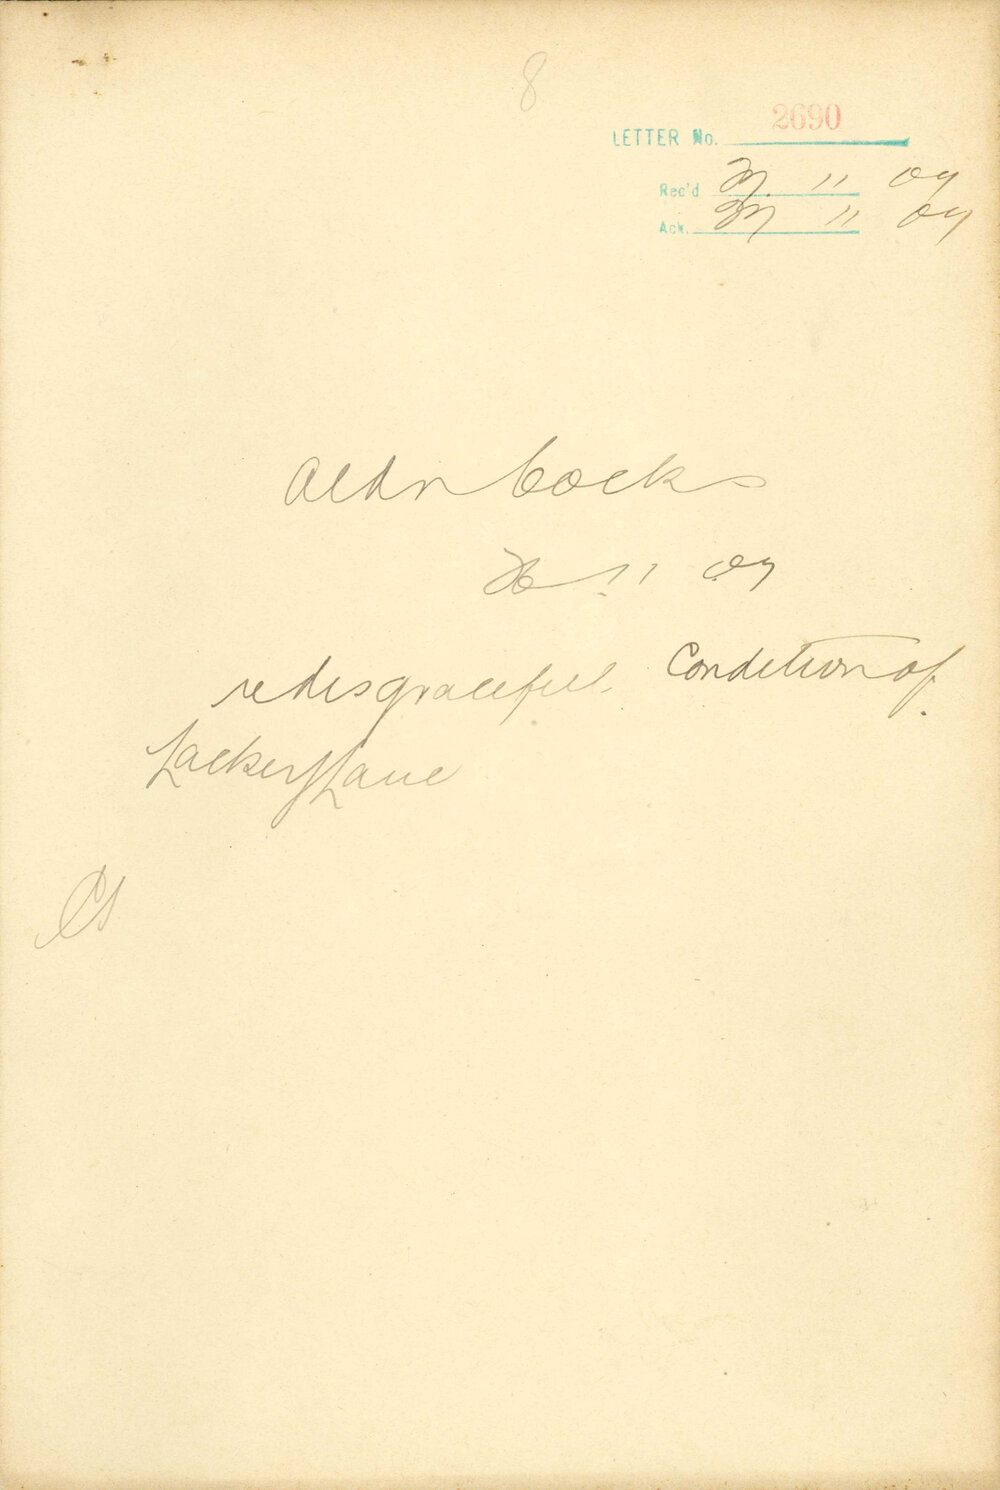 8
LETTER No. 2690
Rec'd 27. 11 07
Ack. 27 11 07
Aldn Cocks
26 11 07
re disgraceful. Condition of
Lackery Lane
CS